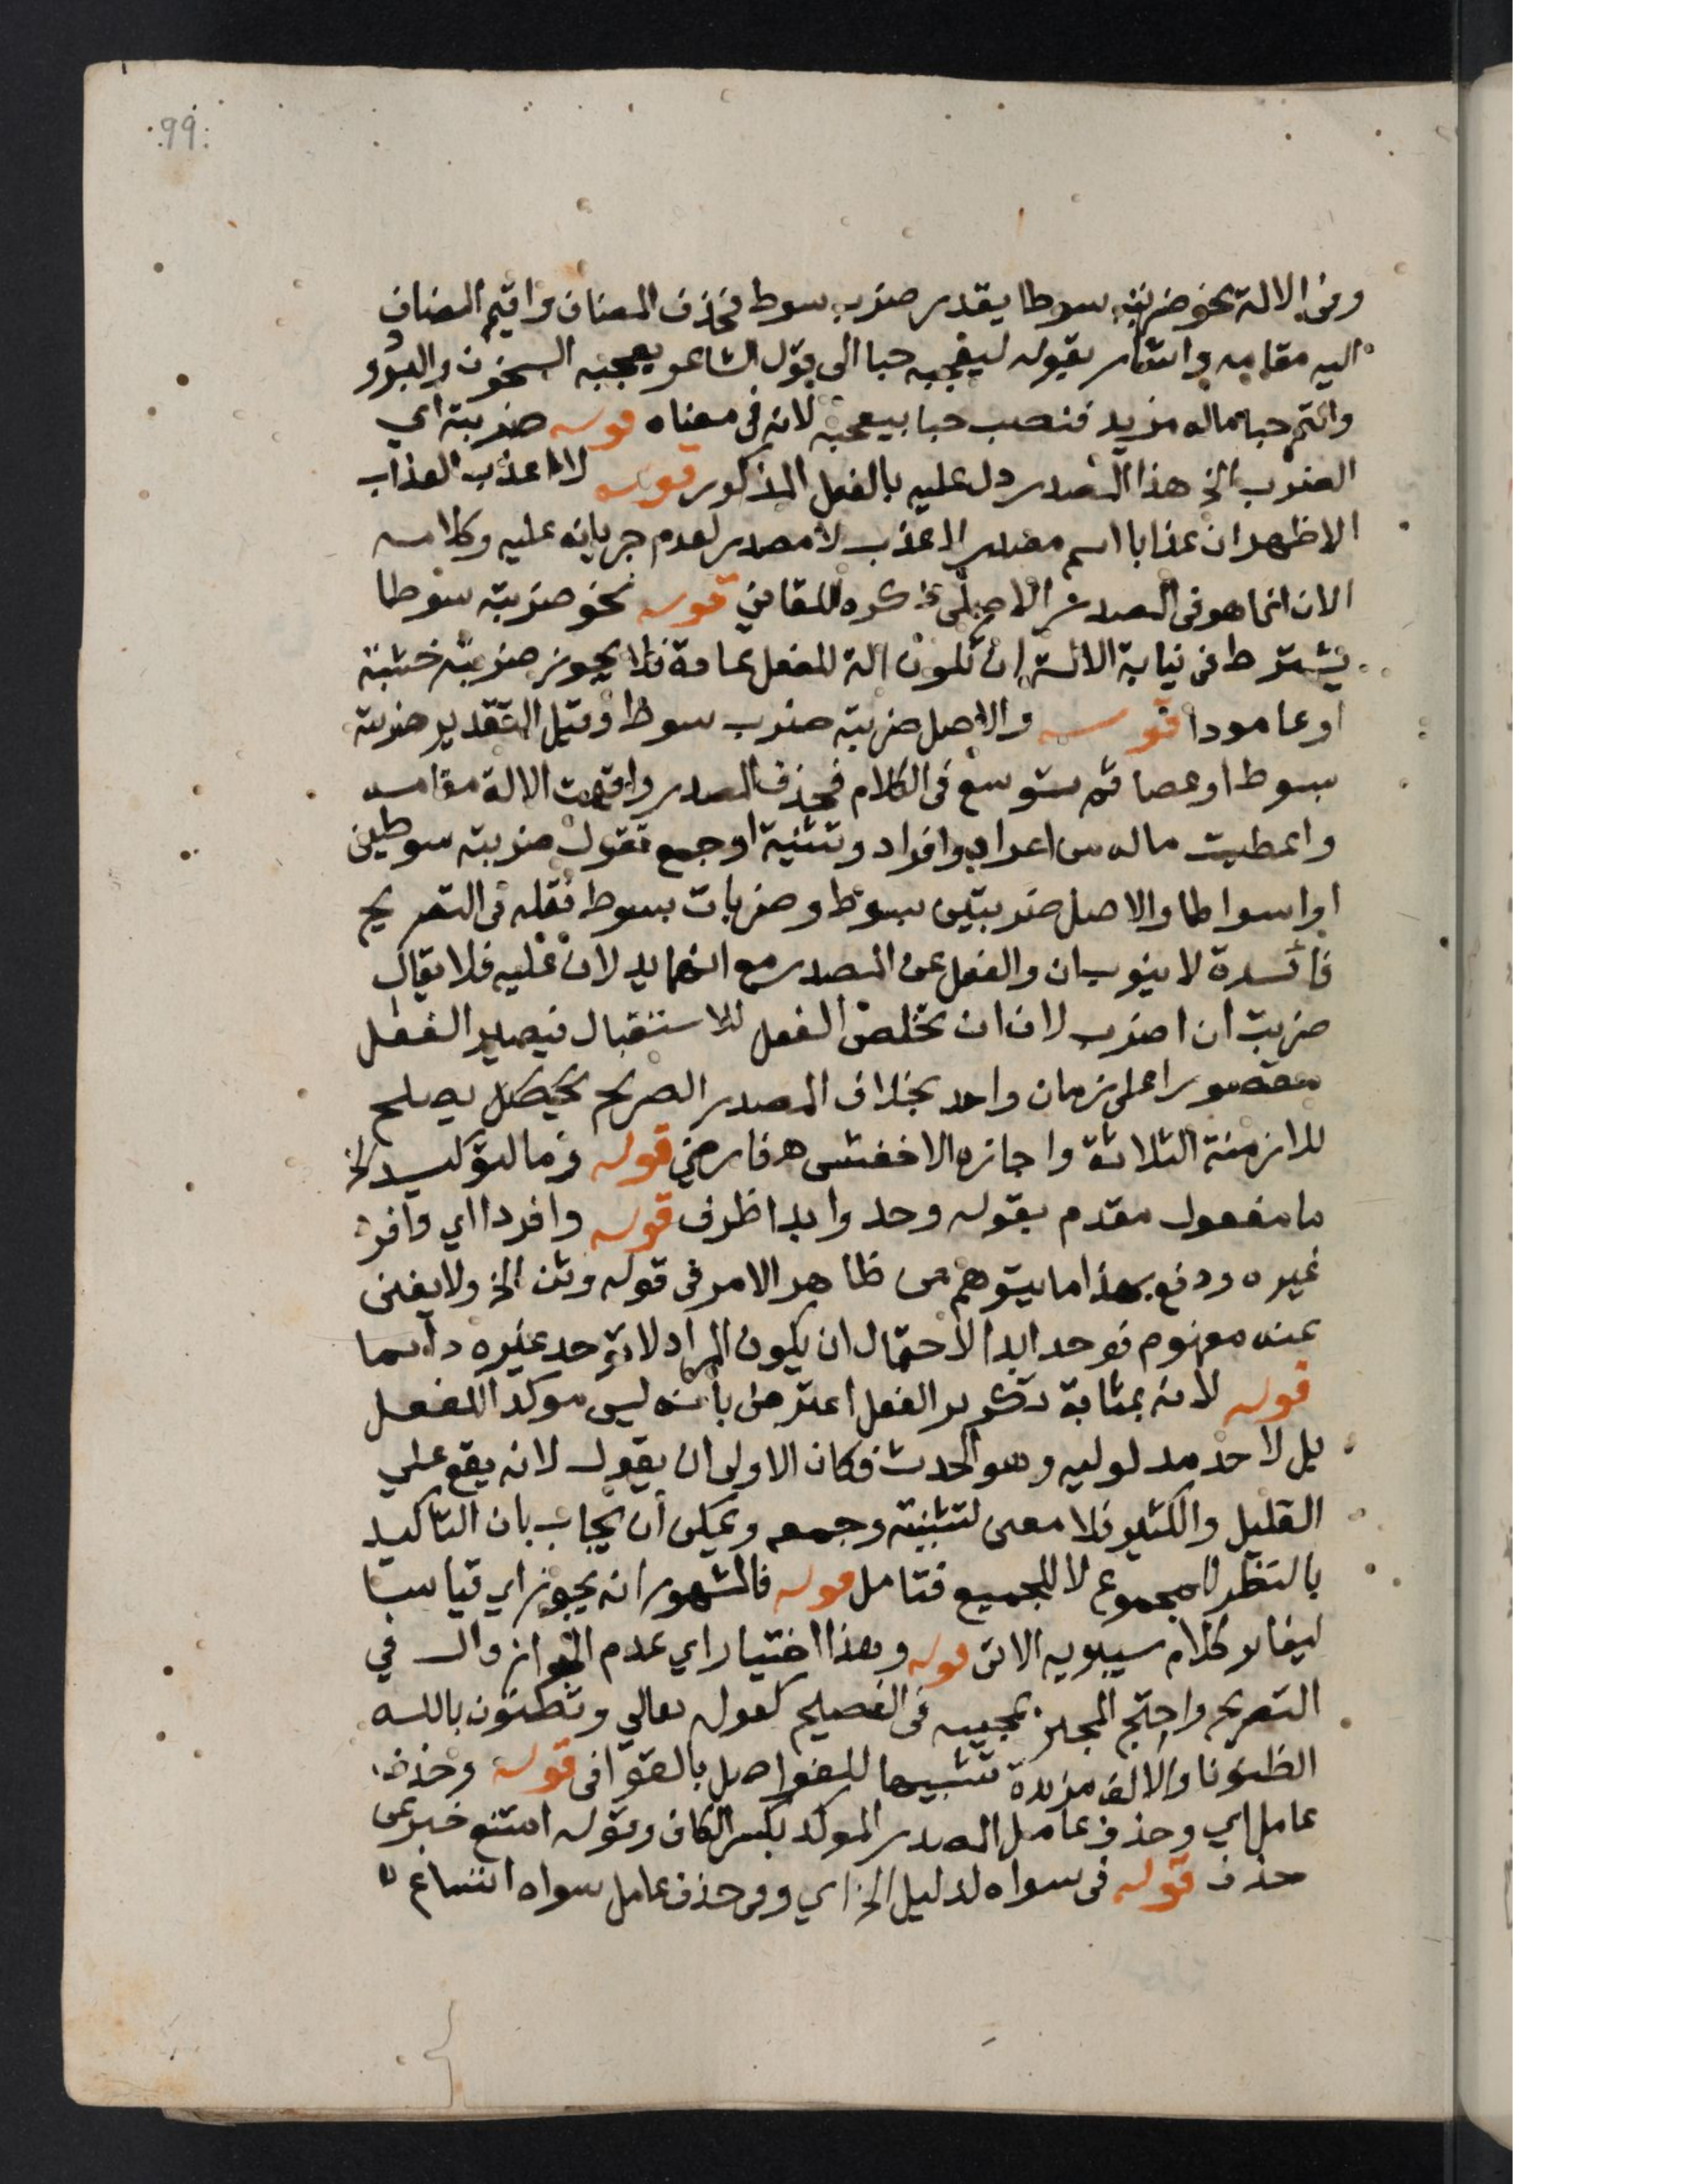 99
وفى الالة نحو ضربته سوطا يقدر ضرب سوط فحذف المضاف واقيم المضاف
اليه مقامه واشار بقوله ليعجبه حبا الى قول الشاعر يعجبه السخون والبرود
والتمر حبا ماله مزيد فنصب حبا بيعجبه لانه فى معناه قوله ضربته اي
الضرب الخ هذا المصدر دل عليه بالفعل المذكور قوله لا اعذب العذاب
الاظهر ان عذابا اسم مصدر لاعذب لا مصدر لعدم جريانه عليه وكلامه
الان انما هو فى المصدر الاصلى ذكره اللقاني قوله نحو ضربته سوطا
يشترط فى نيابة الالة ان تكون الة للفعل عادة فلا يجوز ضربته خشبة
او عامودا قوله والاصل ضربته ضرب سوط وقيل التقدير ضربته
بسوط او عصا ثم توسع فى الكلام فحذف المصدر واقيمت الالة مقامه
واعطيت ماله من اعراب وافراد وتثنية او جمع تقول ضربته سوطين
او اسواطا والاصل ضربتين بسوط وضربات بسوط نقله فى التصريح
فائدة لا ينوب ان والفعل عن المصدر مع انهما يدلان عليه فلا يقال
ضربت ان اضرب لان ان تخلص الفعل للاستقبال فيصير الفعل
مقصورا على زمان واحد بخلاف المصدر الصريح يصلح
للازمنة الثلاثة واجازه الاخفش ه فارضي قوله وما لتوكيد الخ
ما مفعول مقدم بقوله وحد وابدا ظرف قوله وافردا اي وافرد
غيره ودفع بهذا ما يتوهم من ظاهر الامر فى قوله وثن الخ ولا يغنى
عنه مفهوم فوحد ابدا لاحتمال ان يكون المراد لا توحد غيره دائما
قوله لانه بمثابة تكرير الفعل اعترض بانه ليس موكدا للفعل
بل لاحد مدلوليه وهو الحدث فكان الاولى ان يقول لانه يقع علي
القليل والكثير فلا معنى لتثنيته وجمعه ويمكن ان يجاب بان التاكيد
بالنظر للمجموع لا للجميع فتامل قوله فالمشهور انه يجوز اي قياسا
ليغاير كلام سيبويه الاتى قوله وهذا اختيار اي عدم الجواز قال في
التصريح واحتج المجيز بمجيئه فى الفصيح كقوله تعالي وتظنون بالله
الظنونا والالف مزيدة تشبيها للفواصل بالقوافى قوله وحذف
عامل اي وحذف عامل المصدر الموكد بكسر الكاف وقوله امتنع خبر عن
حذف قوله فى سواه لدليل الخ اي وفى حذف عامل سواه اتساع